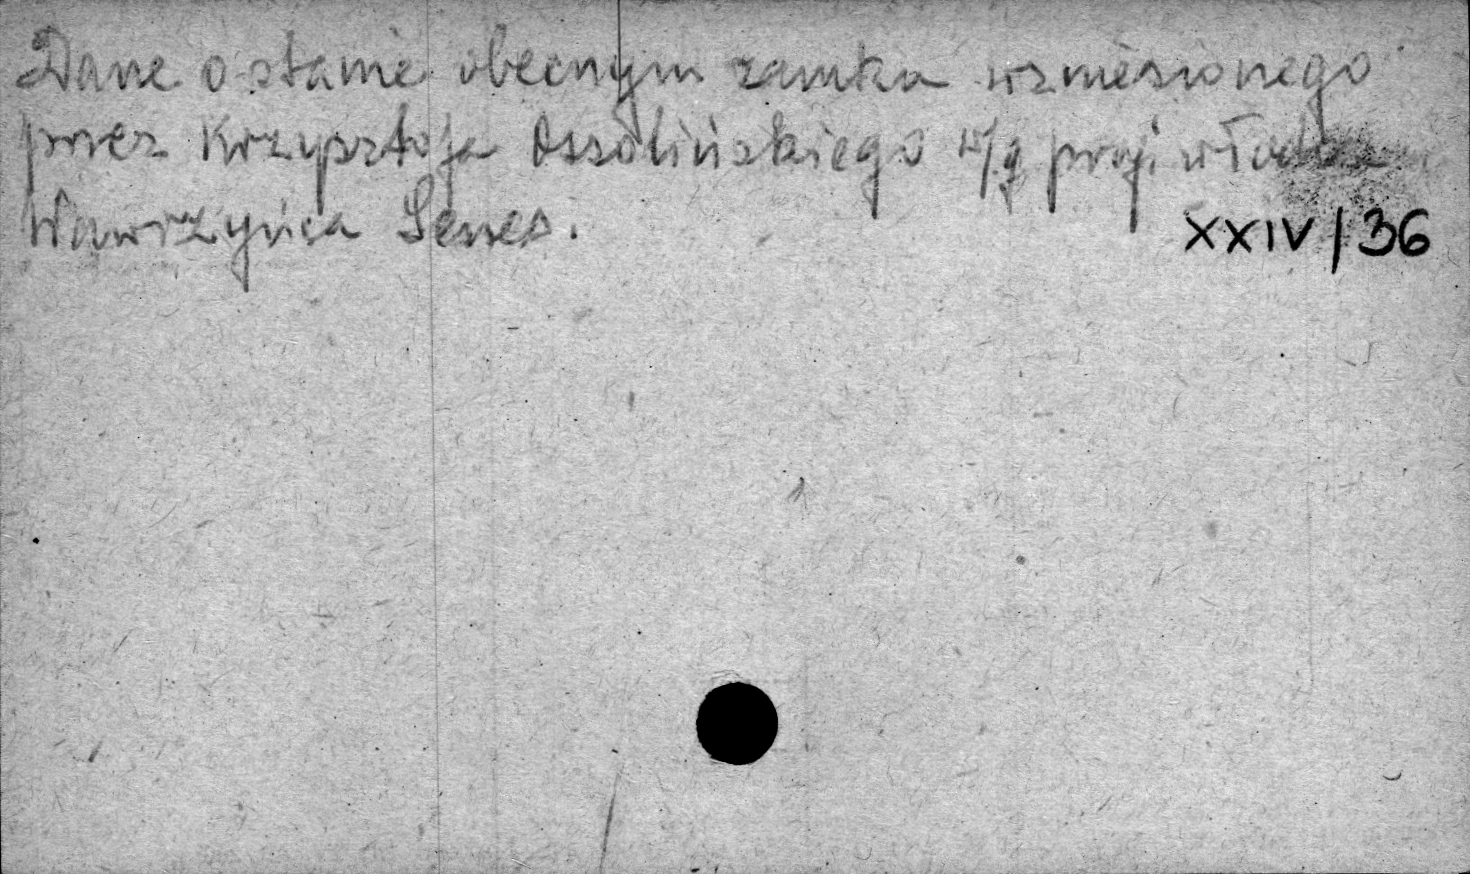 Dane o stanie obecnym zamku wzniesionego
przez Krzysztofa Ossolińskiego w/g proj. włocha
Wawrzyńca Senes.
XXIV/36